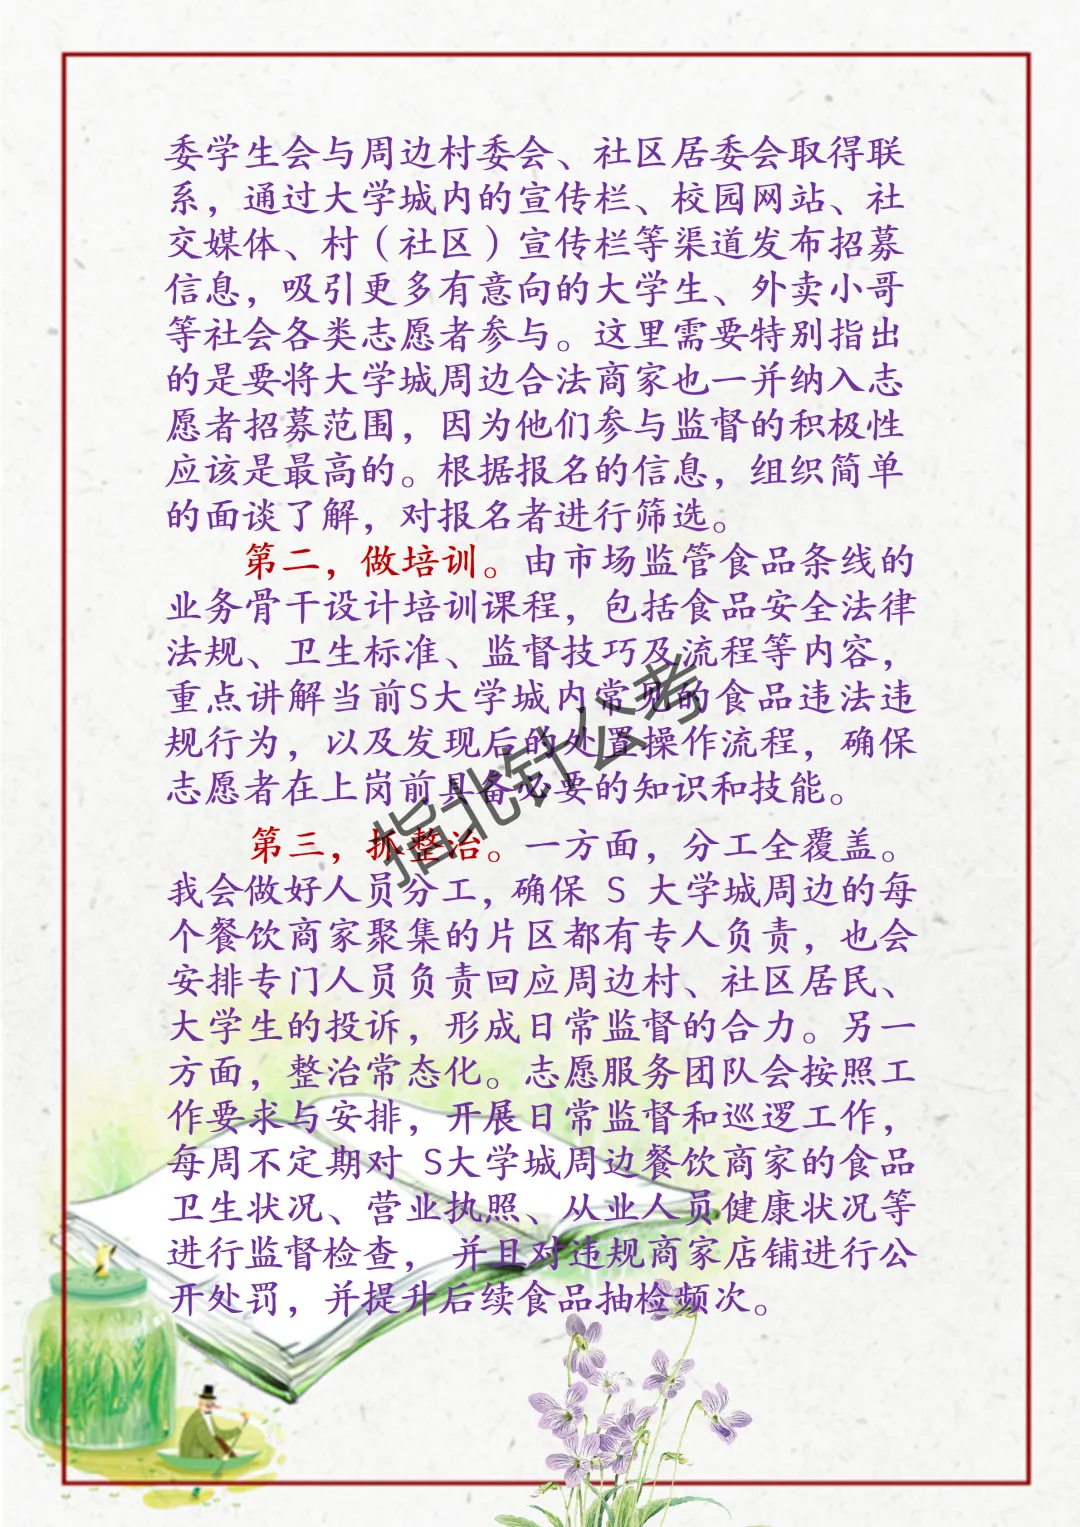 委学生会与周边村委会、社区居委会取得联
系，通过大学城内的宣传栏、校园网站、社
交媒体、村（社区）宣传栏等渠道发布招募
信息，吸引更多有意向的大学生、外卖小哥
等社会各类志愿者参与。这里需要特别指出
的是要将大学城周边合法商家也一并纳入志
愿者招募范围，因为他们参与监督的积极性
应该是最高的。根据报名的信息，组织简单
的面谈了解，对报名者进行筛选。
第二，做培训。由市场监管食品条线的
业务骨干设计培训课程，包括食品安全法律
法规、卫生标准、监督技巧及流程等内容，
重点讲解当前S大学城内常见的食品违法违
规行为，以及发现后的处置操作流程，确保
志愿者在上岗前具备必要的知识和技能。
第三，抓整治。一方面，分工全覆盖。
我会做好人员分工，确保 S 大学城周边的每
个餐饮商家聚集的片区都有专人负责，也会
安排专门人员负责回应周边村、社区居民、
大学生的投诉，形成日常监督的合力。另一
方面，整治常态化。志愿服务团队会按照工
作要求与安排，开展日常监督和巡逻工作，
每周不定期对 S大学城周边餐饮商家的食品
卫生状况、营业执照、从业人员健康状况等
进行监督检查， 并且对违规商家店铺进行公
开处罚，并提升后续食品抽检频次。
指北针公考